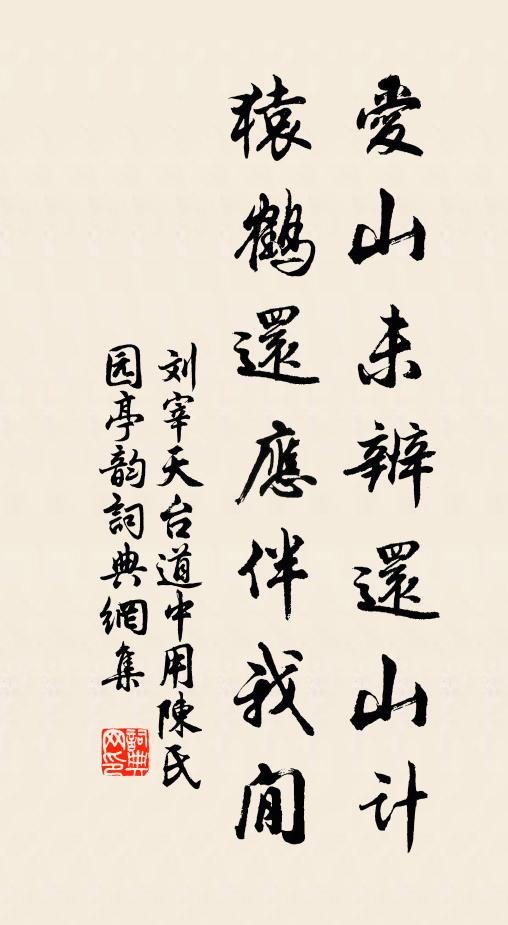 愛山未辨還山計
猿鶴還應伴我閒
刘宰天台道中用陳氏
园亭韵詞典網集
詞典
网印